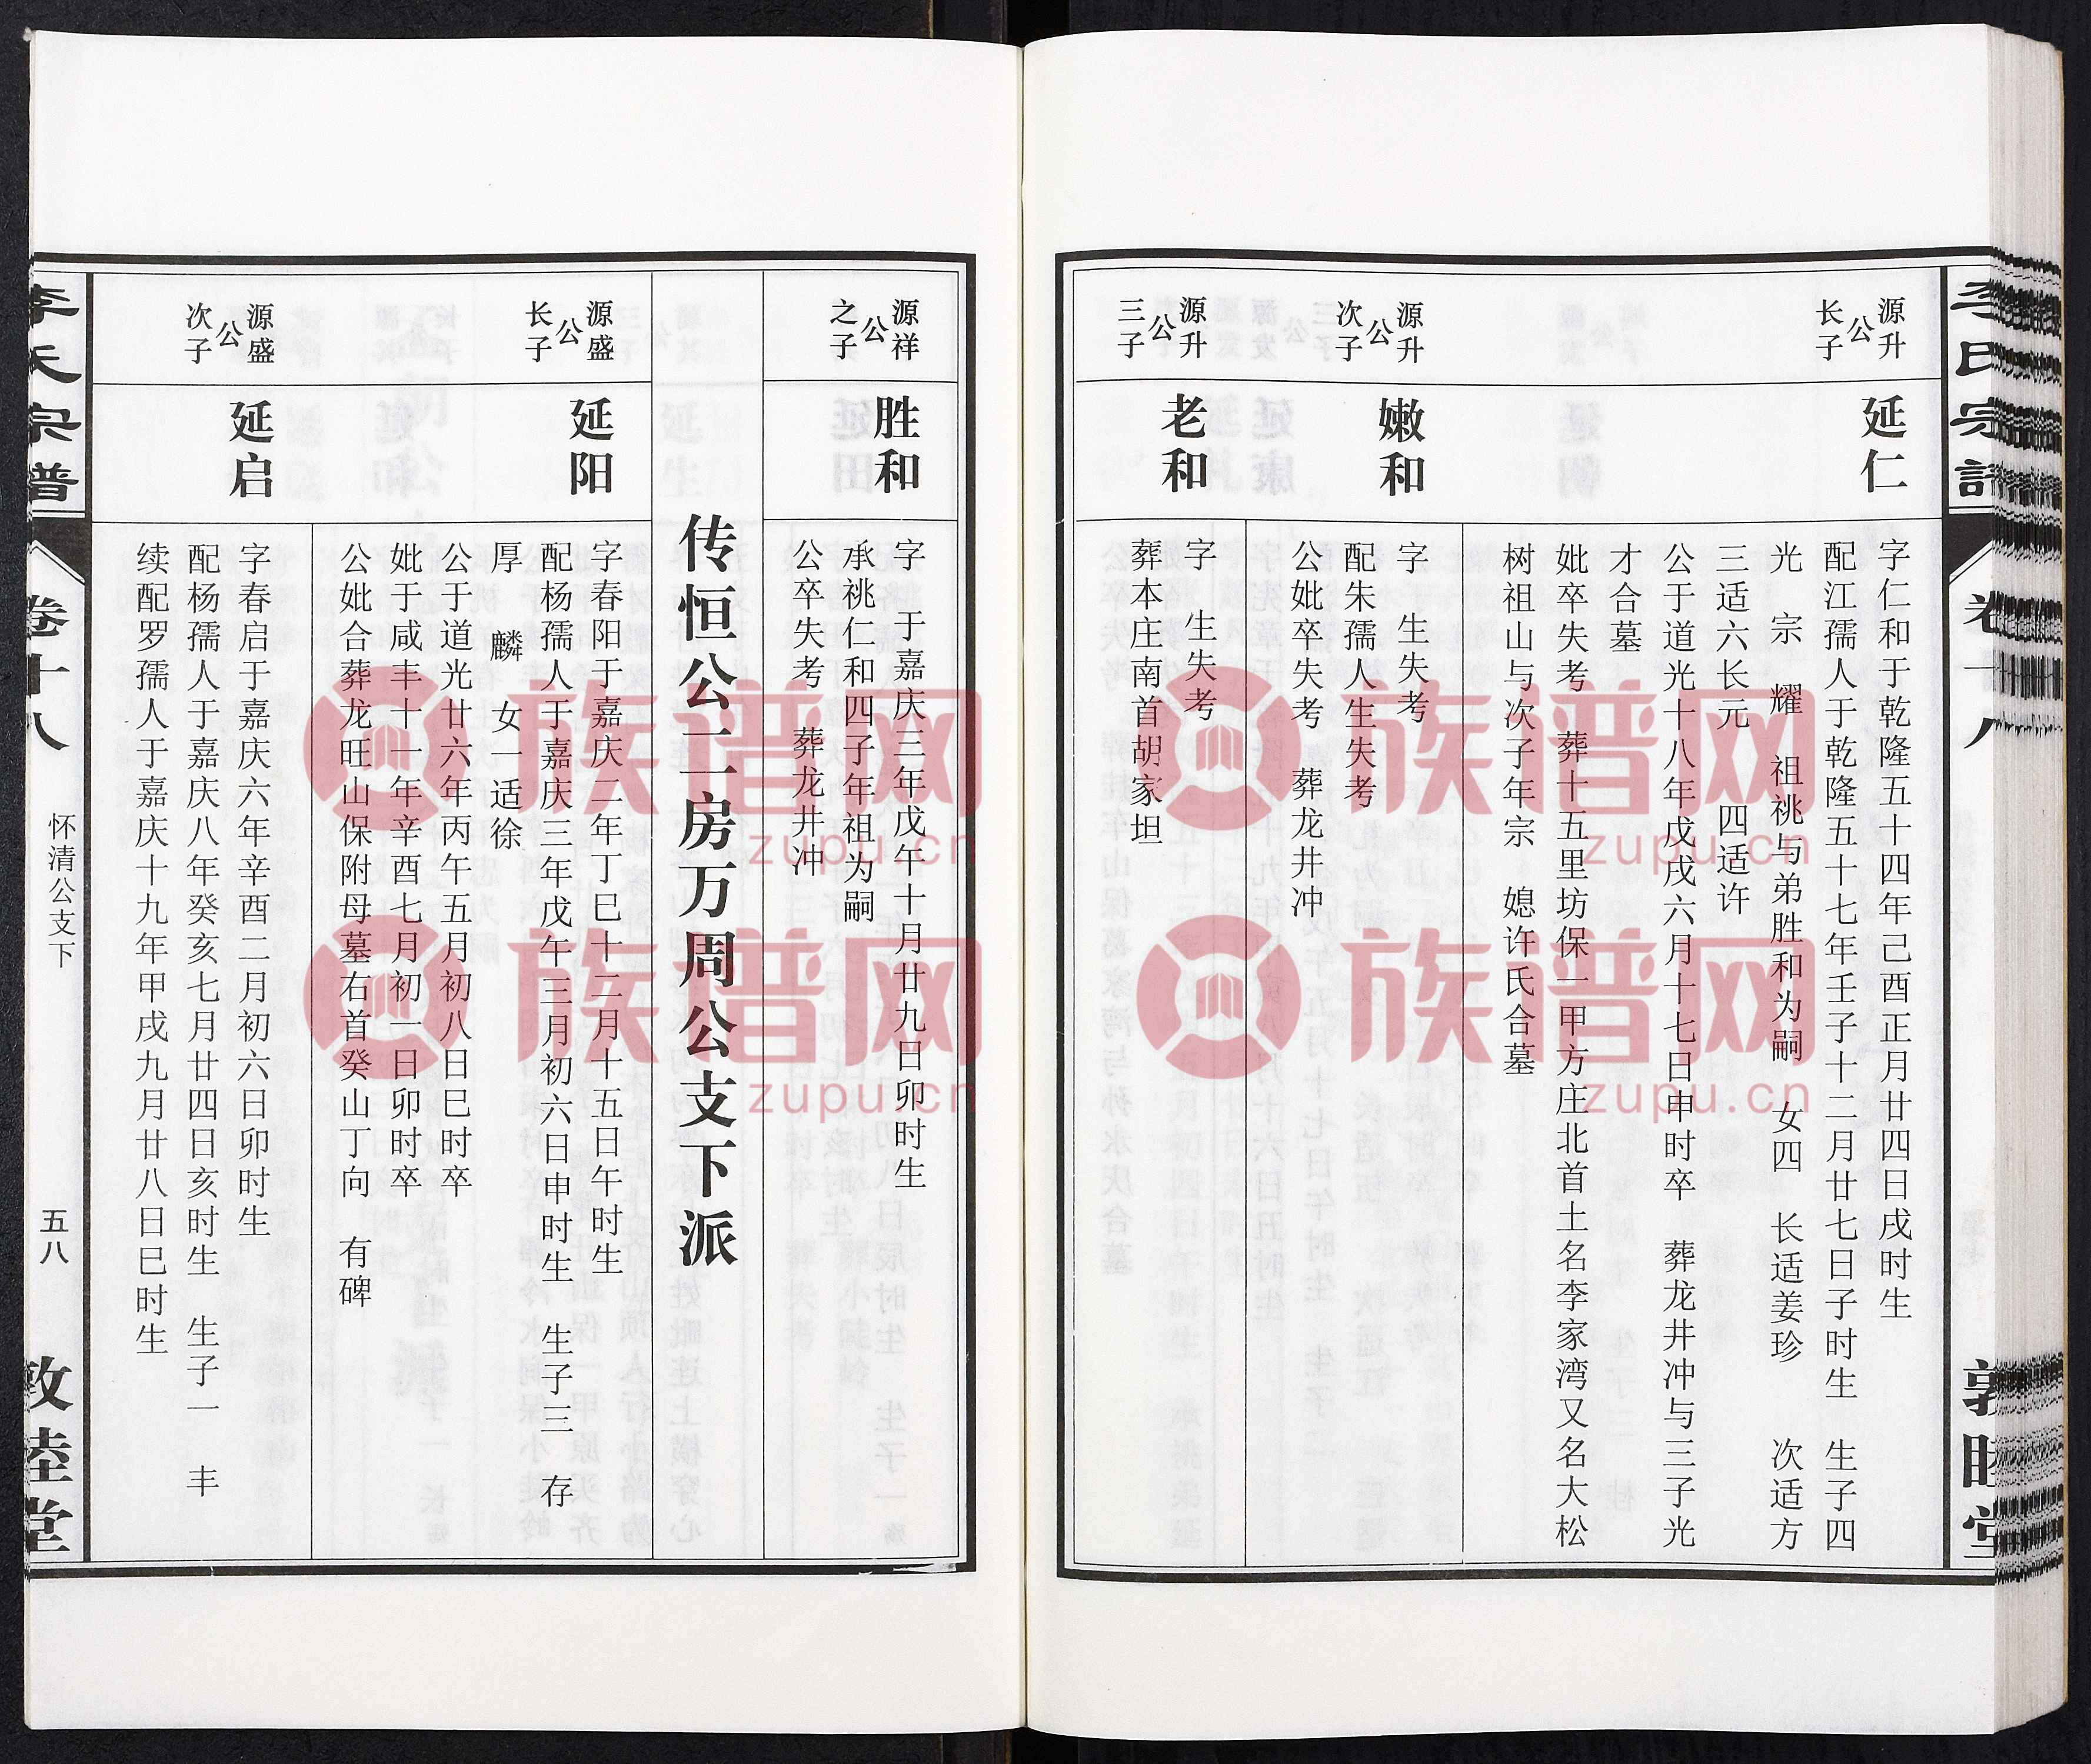 李氏宗谱
卷十八
敦睦堂
源升公长子
延仁
字仁和于乾隆五十四年己酉正月廿四日戌时生
配江孺人于乾隆五十七年壬子十二月廿七日子时生 生子四
光 宗 耀 祖祧与弟胜和为嗣 女四 长适姜珍 次适方
三适六长元 四适许
公于道光十八年戊戌六月十七日申时卒 葬龙井冲与三子光
才合墓
妣卒失考 葬十五里坊保一甲方庄北首土名李家湾又名大松
树祖山与次子年宗 媳许氏合墓
源升公次子
嫩和
字 生失考
配朱孺人生失考
公妣卒失考 葬龙井冲
源升公三子
老和
字 生失考
葬本庄南首胡家坦
源祥公之子
胜和
字 于嘉庆三年戊午十月廿九日卯时生
承祧仁和四子年祖为嗣
公卒失考 葬龙井冲
传恒公二房万周公支下派
源盛公长子
延阳
字春阳于嘉庆二年丁巳十二月十五日午时生
配杨孺人于嘉庆三年戊午三月初六日申时生 生子三 存
厚 麟 女一适徐
公于道光廿六年丙午五月初八日巳时卒
妣于咸丰十一年辛酉七月初一日卯时卒
公妣合葬龙旺山保附母墓右首癸山丁向 有碑
源盛公次子
延启
字春启于嘉庆六年辛酉二月初六日卯时生
配杨孺人于嘉庆八年癸亥七月廿四日亥时生 生子一 丰
续配罗孺人于嘉庆十九年甲戌九月廿八日巳时生
李氏宗谱
卷十八
怀清公支下
五八
敦睦堂
族谱网
zupu.cn
族谱网
zupu.cn
族谱网
zupu.cn
族谱网
zupu.cn